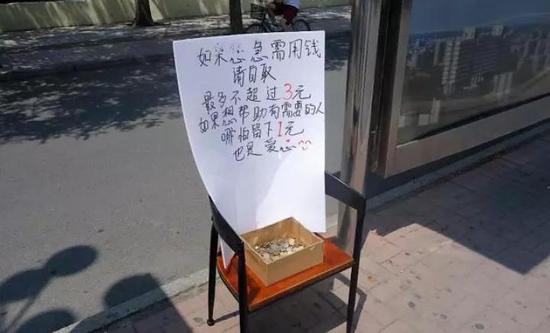 如果您急需用钱
请自取
最多不超过3元
如果想帮助有需要的人
哪怕留下1元
也是爱心